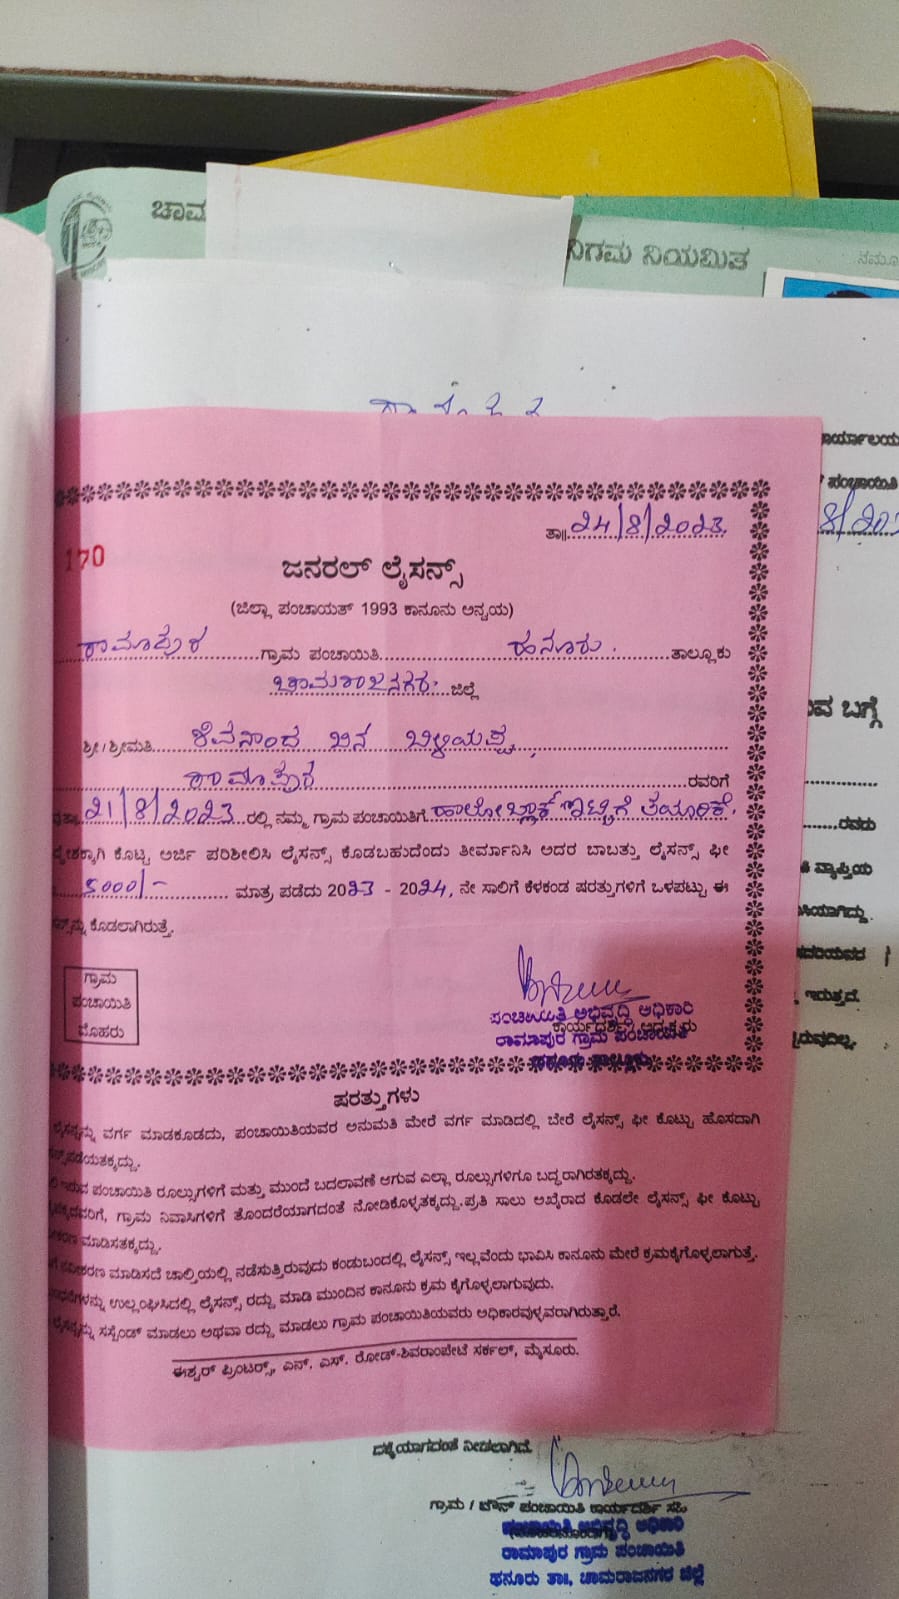 ನಿಗಮ ನಿಯಮಿತ
ಕಾರ್ಯಾಲಯ
ಪಂಚಾಯಿತಿ
ತಾ॥ 24/8/2023
170
ಜನರಲ್ ಲೈಸನ್ಸ್
(ಜಿಲ್ಲಾ ಪಂಚಾಯತ್ 1993 ಕಾನೂನು ಅನ್ವಯ)
ರಾಮಾಪುರ ಗ್ರಾಮ ಪಂಚಾಯಿತಿ ಹನೂರು. ತಾಲ್ಲೂಕು
ಚಾಮರಾಜನಗರ ಜಿಲ್ಲೆ
ಬಗ್ಗೆ
ಶ್ರೀ/ಶ್ರೀಮತಿ ಶಿವನಾಂದ ಬಿನ್
ರಾಮಾಪುರ ರವರಿಗೆ
21/8/2023 ರಲ್ಲಿ ನಮ್ಮ ಗ್ರಾಮ ಪಂಚಾಯಿತಿಗೆ ಹಾಲೋಬ್ಲಾಕ್ ಇಟ್ಟಿಗೆ ತಯಾರಿಕೆ.
ರವರು
ಕೊಟ್ಟ ಅರ್ಜಿ ಪರಿಶೀಲಿಸಿ ಲೈಸನ್ಸ್ ಕೊಡಬಹುದೆಂದು ತೀರ್ಮಾನಿಸಿ ಅದರ ಬಾಬತ್ತು ಲೈಸನ್ಸ್ ಫೀ
ವ್ಯಾಪ್ತಿಯ
5000/- ಮಾತ್ರ ಪಡೆದು 2023 - 2024, ನೇ ಸಾಲಿಗೆ ಕೆಳಕಂಡ ಷರತ್ತುಗಳಿಗೆ ಒಳಪಟ್ಟು ಈ
ಕೊಡಲಾಗಿರುತ್ತೆ.
ಇರುತ್ತದೆ.
ಗ್ರಾಮ
ಪಂಚಾಯಿತಿ
ಮೊಹರು
ಪಂಚಾಯಿತಿ ಅಭಿವೃದ್ಧಿ ಅಧಿಕಾರಿ
ರಾಮಾಪುರ ಗ್ರಾಮ ಪಂಚಾಯಿತಿ
ಹನೂರು ತಾಲ್ಲೂಕು
ಷರತ್ತುಗಳು
ವರ್ಗ ಮಾಡಕೂಡದು, ಪಂಚಾಯಿತಿಯವರ ಅನುಮತಿ ಮೇರೆ ವರ್ಗ ಮಾಡಿದಲ್ಲಿ ಬೇರೆ ಲೈಸನ್ಸ್ ಫೀ ಕೊಟ್ಟು ಹೊಸದಾಗಿ
ಇರುವ ಪಂಚಾಯಿತಿ ರೂಲ್ಸುಗಳಿಗೆ ಮತ್ತು ಮುಂದೆ ಬದಲಾವಣೆ ಆಗುವ ಎಲ್ಲಾ ರೂಲ್ಸುಗಳಿಗೂ ಬದ್ಧರಾಗಿರತಕ್ಕದ್ದು.
ಗ್ರಾಮ ನಿವಾಸಿಗಳಿಗೆ ತೊಂದರೆಯಾಗದಂತೆ ನೋಡಿಕೊಳ್ಳತಕ್ಕದ್ದು. ಪ್ರತಿ ಸಾಲು ಅಖೈರಾದ ಕೂಡಲೇ ಲೈಸನ್ಸ್ ಫೀ ಕೊಟ್ಟು
ಮಾಡಿಸತಕ್ಕದ್ದು.
ಮಾಡಿಸದೆ ಚಾಲ್ತಿಯಲ್ಲಿ ನಡೆಸುತ್ತಿರುವುದು ಕಂಡುಬಂದಲ್ಲಿ ಲೈಸನ್ಸ್ ಇಲ್ಲವೆಂದು ಭಾವಿಸಿ ಕಾನೂನು ಮೇರೆ ಕ್ರಮಕೈಗೊಳ್ಳಲಾಗುತ್ತೆ.
ಉಲ್ಲಂಘಿಸಿದಲ್ಲಿ ಲೈಸನ್ಸ್ ರದ್ದು ಮಾಡಿ ಮುಂದಿನ ಕಾನೂನು ಕ್ರಮ ಕೈಗೊಳ್ಳಲಾಗುವುದು.
ಸಸ್ಪೆಂಡ್ ಮಾಡಲು ಅಥವಾ ರದ್ದು ಮಾಡಲು ಗ್ರಾಮ ಪಂಚಾಯಿತಿಯವರು ಅಧಿಕಾರವುಳ್ಳವರಾಗಿರುತ್ತಾರೆ.
ಈಶ್ವರ್ ಪ್ರಿಂಟರ್ಸ್, ಎನ್. ಎಸ್. ರೋಡ್-ಶಿವರಾಂಪೇಟೆ ಸರ್ಕಲ್, ಮೈಸೂರು.
ನೀಡಲಾಗಿದೆ.
ಗ್ರಾಮ / ಟೌನ್ ಪಂಚಾಯಿತಿ ಕಾರ್ಯದರ್ಶಿ ಸಹಿ
ಪಂಚಾಯಿತಿ ಅಭಿವೃದ್ಧಿ ಅಧಿಕಾರಿ
ರಾಮಾಪುರ ಗ್ರಾಮ ಪಂಚಾಯಿತಿ
ಹನೂರು ತಾ॥, ಚಾಮರಾಜನಗರ ಜಿಲ್ಲೆ